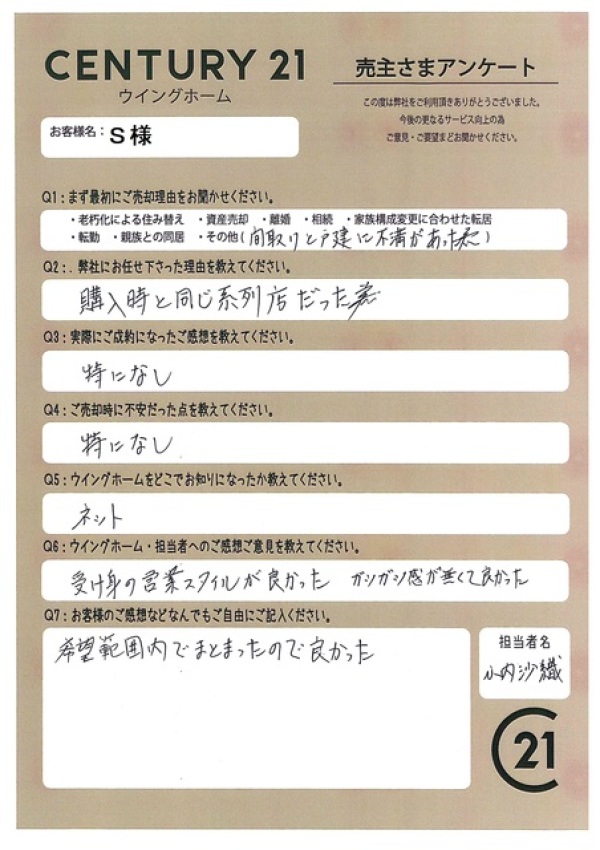 CENTURY 21
ウイングホーム
売主さまアンケート
この度は弊社をご利用頂きありがとうございました。
今後の更なるサービス向上の為
ご意見・ご要望まどお聞かせください。
お客様名：S様
Q1：まず最初にご売却理由をお聞かせください。
・老朽化による住み替え ・資産売却 ・離婚 ・相続 ・家族構成変更に合わせた転居
・転勤 ・親族との同居 ・その他(間取りと戸建に不満があった為)
Q2：．弊社にお任せ下さった理由を教えてください。
購入時と同じ系列店だった為
Q3：実際にご成約になったご感想を教えてください。
特になし
Q4：ご売却時に不安だった点を教えてください。
特になし
Q5：ウイングホームをどこでお知りになったか教えてください。
ネット
Q6：ウイングホーム・担当者へのご感想ご意見を教えてください。
受け身の営業スタイルが良かった ガツガツ感が無くて良かった
Q7：お客様のご感想などなんでもご自由にご記入ください。
希望範囲内でまとまったので良かった
担当者名
小内沙織
C21